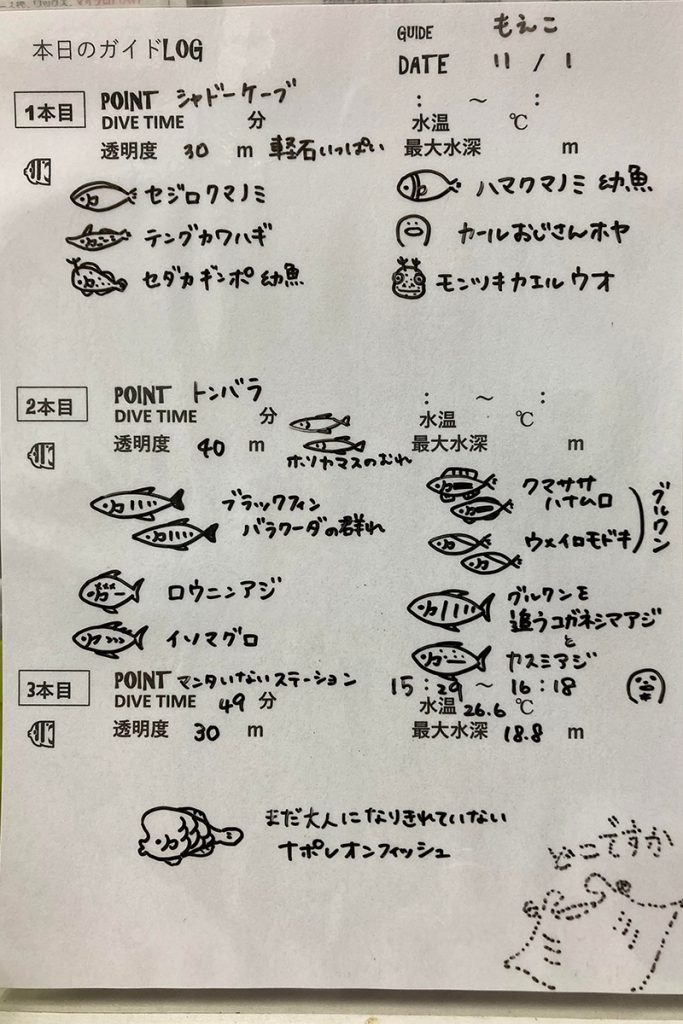 本日のガイドLOG
GUIDE もえこ
DATE 11 / 1
1本目
POINT シャドーケーブ
: ～ :
DIVE TIME 分
水温 ℃
透明度 30 m 軽石いっぱい
最大水深 m
セジロクマノミ
ハマクマノミ 幼魚
テングカワハギ
カールおじさんホヤ
セダカギンポ 幼魚
モンツキカエルウオ
2本目
POINT トンバラ
: ～ :
DIVE TIME 分
水温 ℃
透明度 40 m
最大水深 m
ホソカマスのむれ
ブラックフィン
バラクーダの群れ
クマササ
ハナムロ
ウメイロモドキ
グルクン
ロウニンアジ
グルクンを
追うコガネシマアジ
と
カスミアジ
イソマグロ
3本目
POINT マンタいないステーション
15:29 ～ 16:18
DIVE TIME 49 分
水温 26.6 ℃
透明度 30 m
最大水深 18.8 m
まだ大人になりきれていない
ナポレオンフィッシュ
どこですか